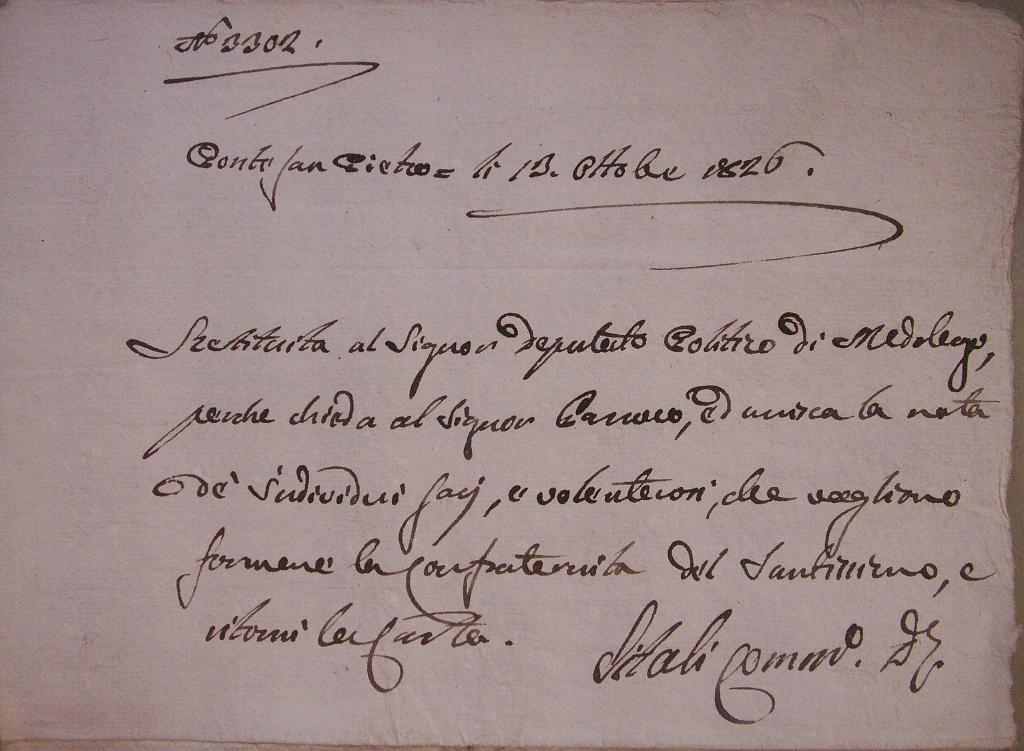 N° 3302.
Ponte San Pietro = li 13. Ottobre 1826.
Restituita al Signor deputato Politico di Medolago,
perche chieda al Signor Parroco, ed unisca la nota
de' individui savj, e volenterosi, che vogliono
formare la Confraternita del Santissimo, e
ritorni la Carta.
Vitali Comm°.